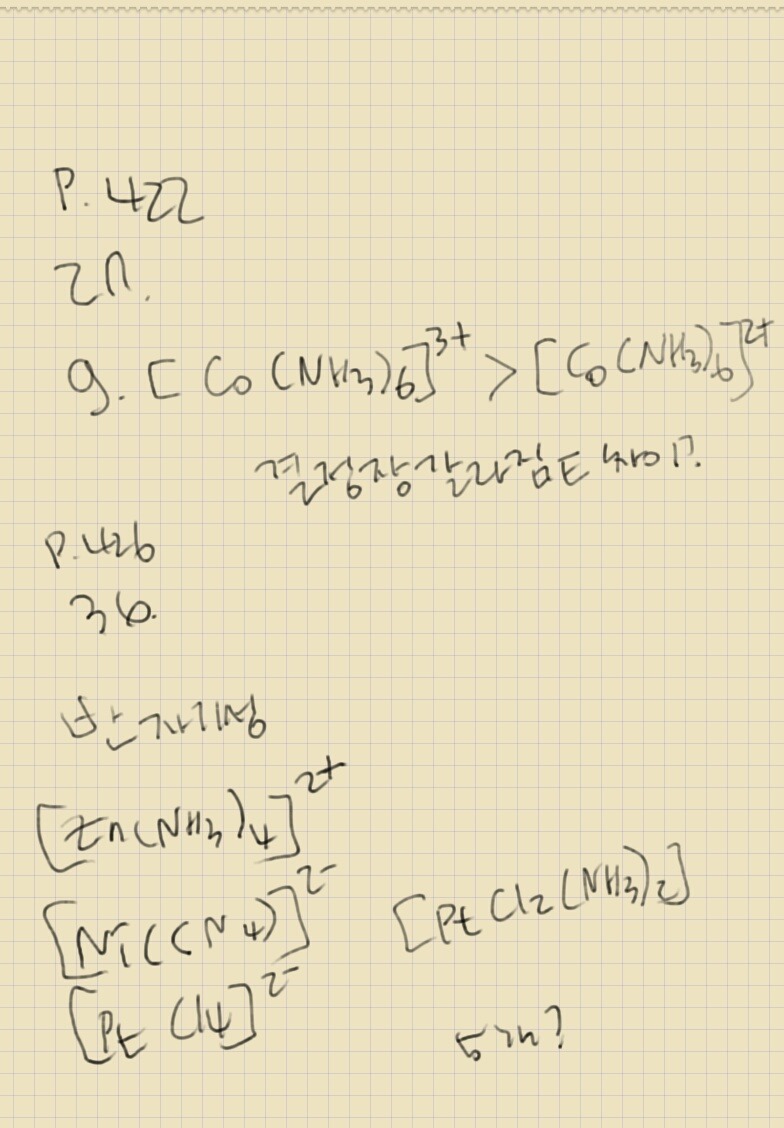 P. 422
27.
9. [Co(NH3)6]3+ > [Co(NH3)6]2+
결정장갈라짐E 차이?
P. 426
36.
반자기성
[Zn(NH3)4]2+
[Ni(CN4)]2-
[PtCl2(NH3)2]
[PtCl4]2-
5개?